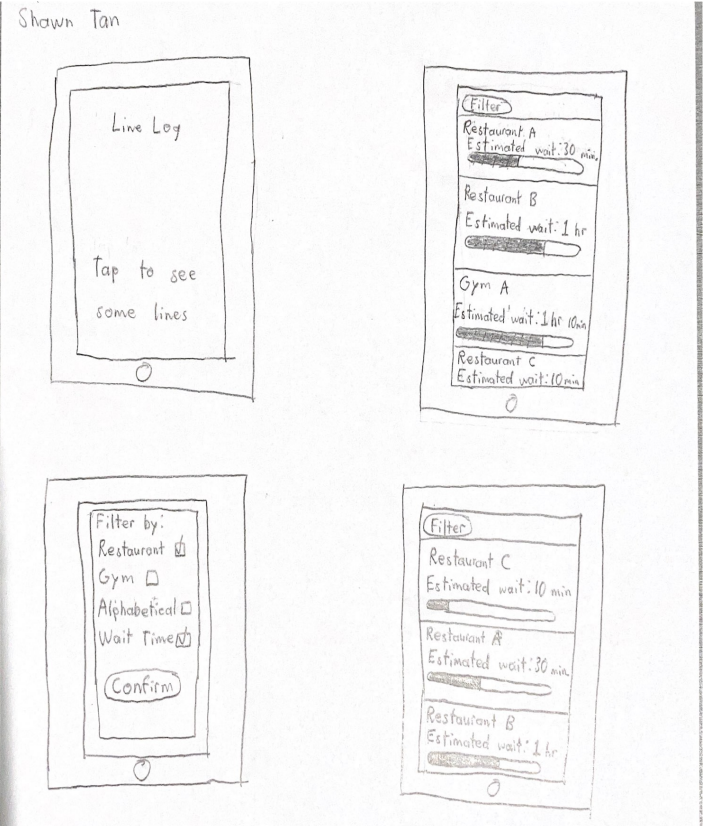 Shawn Tan
Line Log
Tap to see
some lines
Filter
Restaurant A
Estimated wait: 30 min
Restaurant B
Estimated wait: 1 hr
Gym A
Estimated wait: 1 hr 10min
Restaurant C
Estimated wait: 10 min
Filter by:
Restaurant
Gym
Alphabetical
Wait Time
Confirm
Filter
Restaurant C
Estimated wait: 10 min
Restaurant A
Estimated wait: 30 min
Restaurant B
Estimated wait: 1 hr